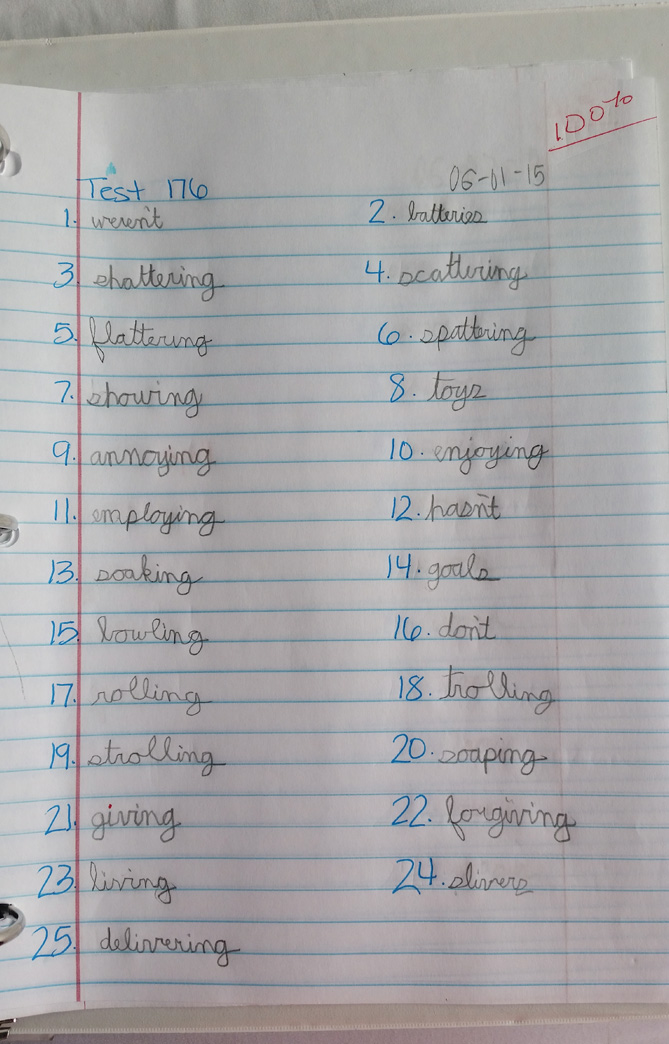 100%
Test 176 06-01-15
1. weren't 2. batteries
3. shattering 4. scattering
5. flattering 6. spattering
7. showing 8. toys
9. annoying 10. enjoying
11. employing 12. hasn't
13. soaking 14. goals
15. bowling 16. don't
17. rolling 18. trolling
19. strolling 20. soaping
21. giving 22. forgiving
23. living 24. slivers
25. delivering